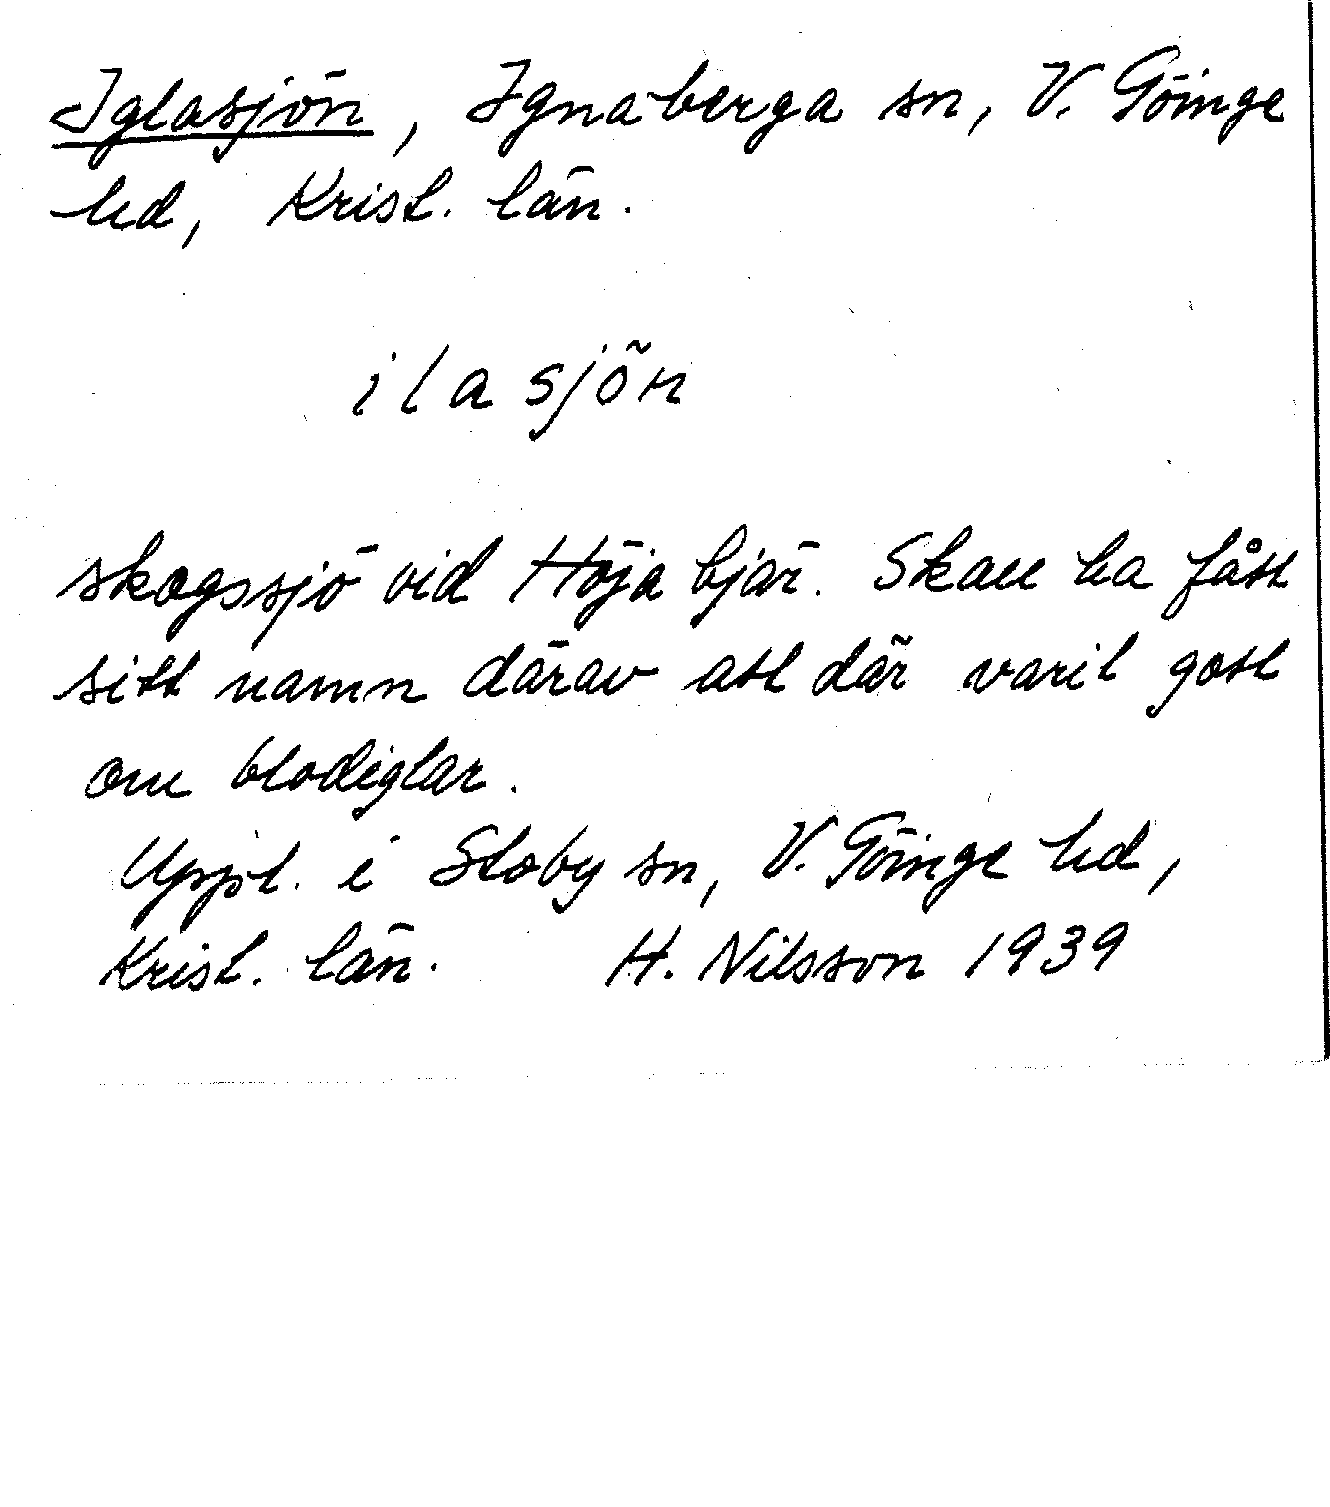 Iglasjön, Ignaberga sn, V. Göinge
hd, Krist. län.
ilasjön
skogssjö vid Höja bjär. Skall ha fått
sitt namn därav att där varit gott
om blodiglar.
Uppt. i Stoby sn, V. Göinge hd,
Krist. län. H. Nilsson 1939